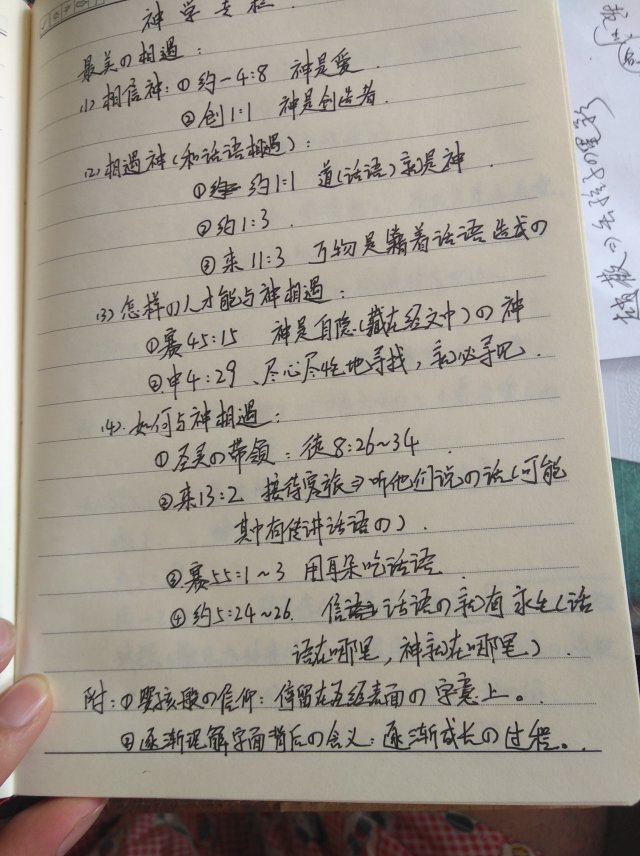 神学专栏.
最美の相遇:
(1)相信神:①约一4:8 神是爱
②创1:1 神是创造者.
(2)相遇神(和话语相遇):
① 约1:1 道(话语)就是神.
②约1:3.
③来11:3 万物是藉着话语造成の
(3)怎样の人才能与神相遇:
①赛45:15 神是自隐(藏在经文中)の神
②申4:29、尽心尽性地寻找,就必寻见.
(4).如何与神相遇:
①圣灵の带领:徒8:26~34
②来13:2 接待客旅⇒听他们说の话(可能
其中有传讲话语の).
③赛55:1~3 用耳朵吃话语.
④约5:24~26. 信 话语の就有永生(话
语在哪里,神就在哪里).
附:①婴孩般の信仰:停留在圣经表面の字意上。
②逐渐理解字面背后の含义:逐渐成长の过程。